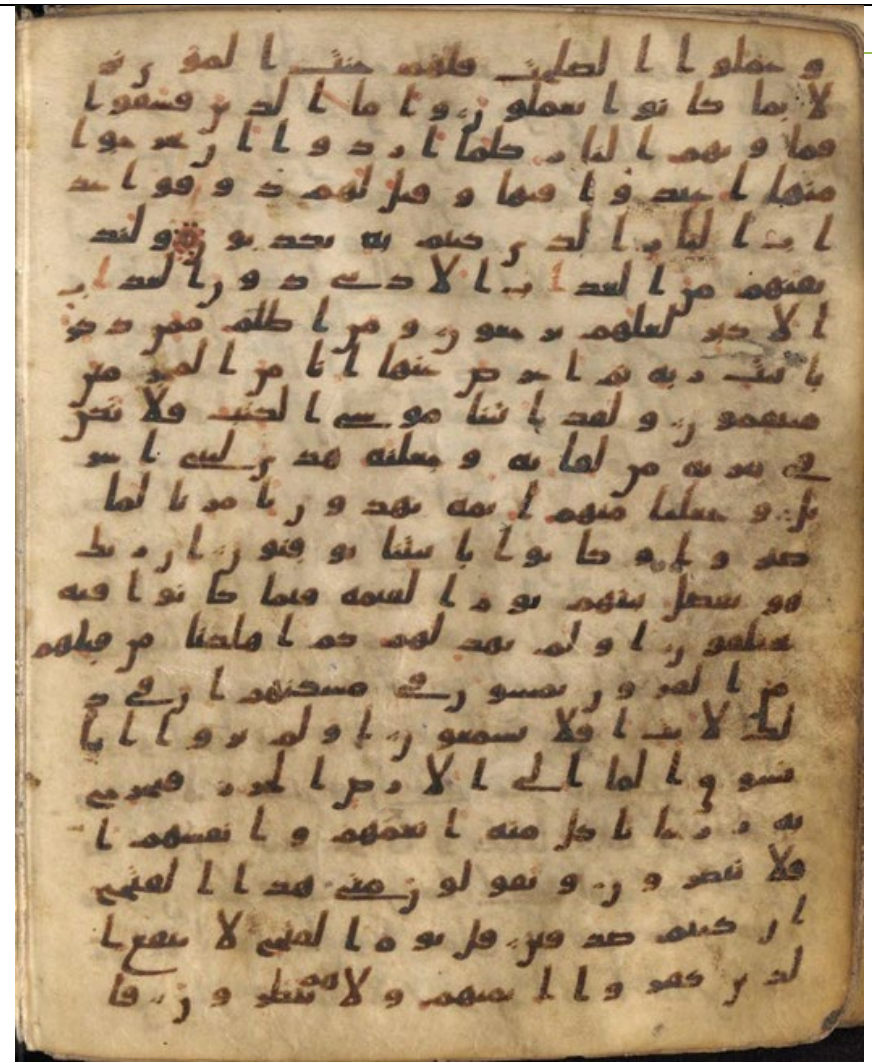 و عملوا الصلحت فلهم جنت الموى نز
لا بما كانوا يعملون واما الذين فسقوا
فماويهم النار كلما اردوا ان يخرجوا
منها اعيدوا فيها وقيل لهم ذوقوا عذ
اب النار الذي كنتم به تكذبون ولنذ
يقنهم من العذاب الادنى دون العذاب
الاكبر لعلهم يرجعون ومن اظلم ممن ذكر
بايت ربه ثم اعرض عنها انا من المجرمين
منتقمون ولقد اتينا موسى الكتب فلا تكن
في مرية من لقائه وجعلنه هدى لبني اسر
يل وجعلنا منهم ائمة يهدون بامرنا لما
صبروا وكانوا بايتنا يوقنون ان ربك
هو يفصل بينهم يوم القيمة فيما كانوا فيه
يختلفون اولم يهد لهم كم اهلكنا من قبلهم
من القرون يمشون في مسكنهم ان في ذ
لك لايت افلا يسمعون اولم يروا انا
نسوق الما الى الارض الجرز فنخرج
به زرعا تاكل منه انعمهم وانفسهم ا
فلا يبصرون ويقولون متى هذا الفتح
ان كنتم صدقين قل يوم الفتح لا ينفع ا
لذين كفروا ايمنهم ولا هم ينظرون فا